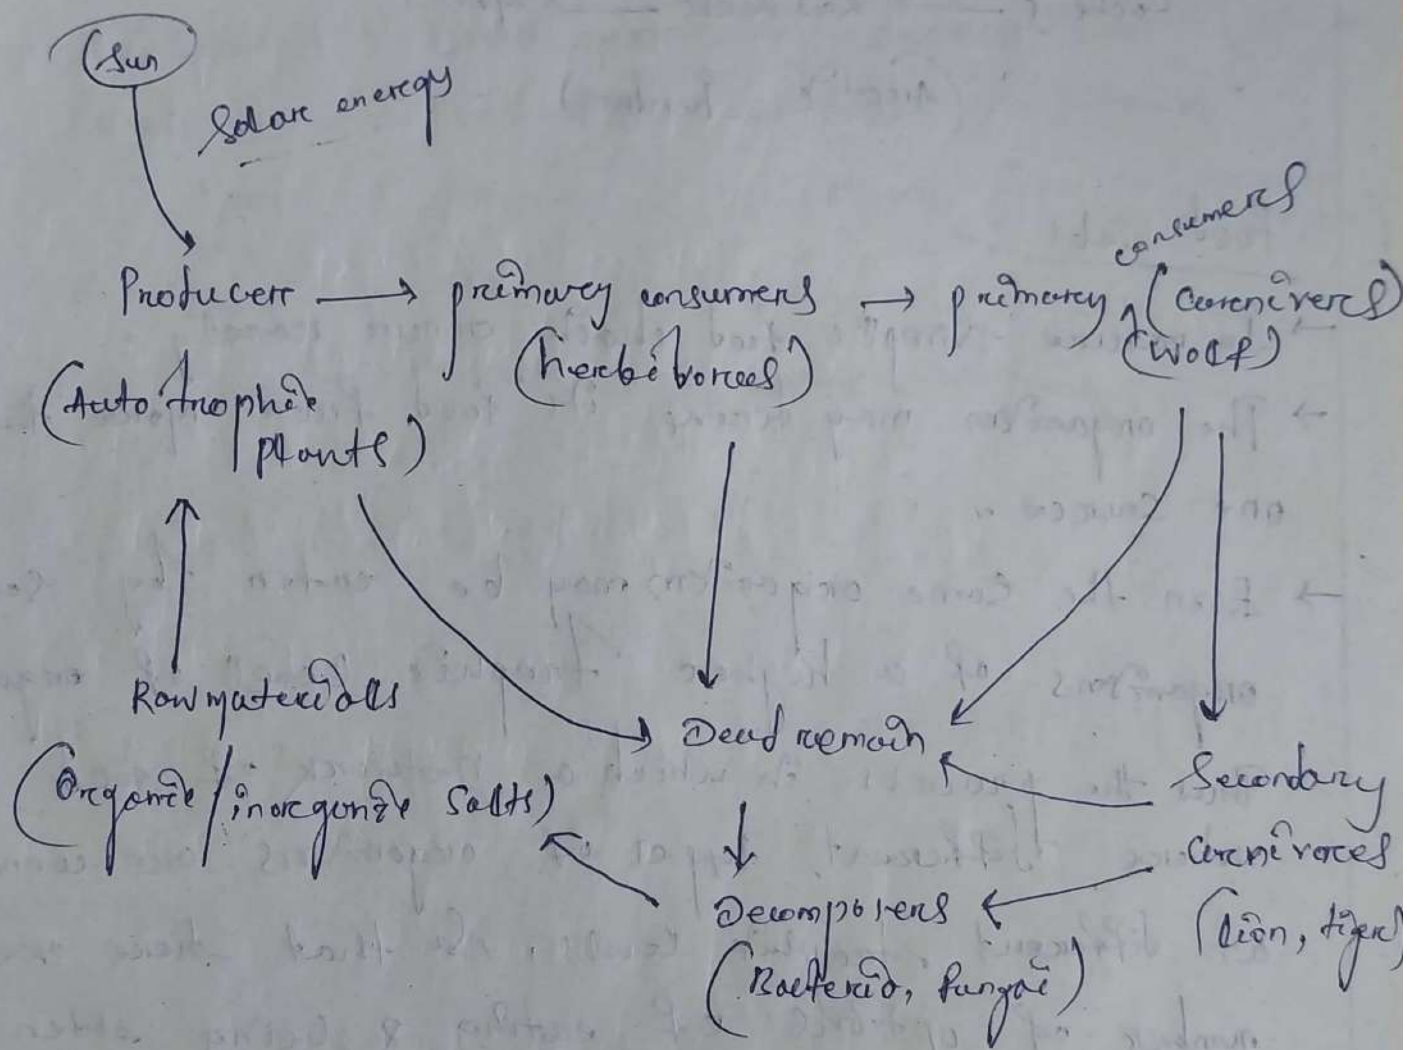 Sun
Solar energy
consumers
Producer → primary consumers → primary (Carnivers)
(herbivores) (Wolf)
(Autotrophic
plants)
Raw materials
(Organic/inorganic salts)
Dead remain
Secondary
Carnivores
(lion, tiger)
Decomposers
(Bacteria, fungai)